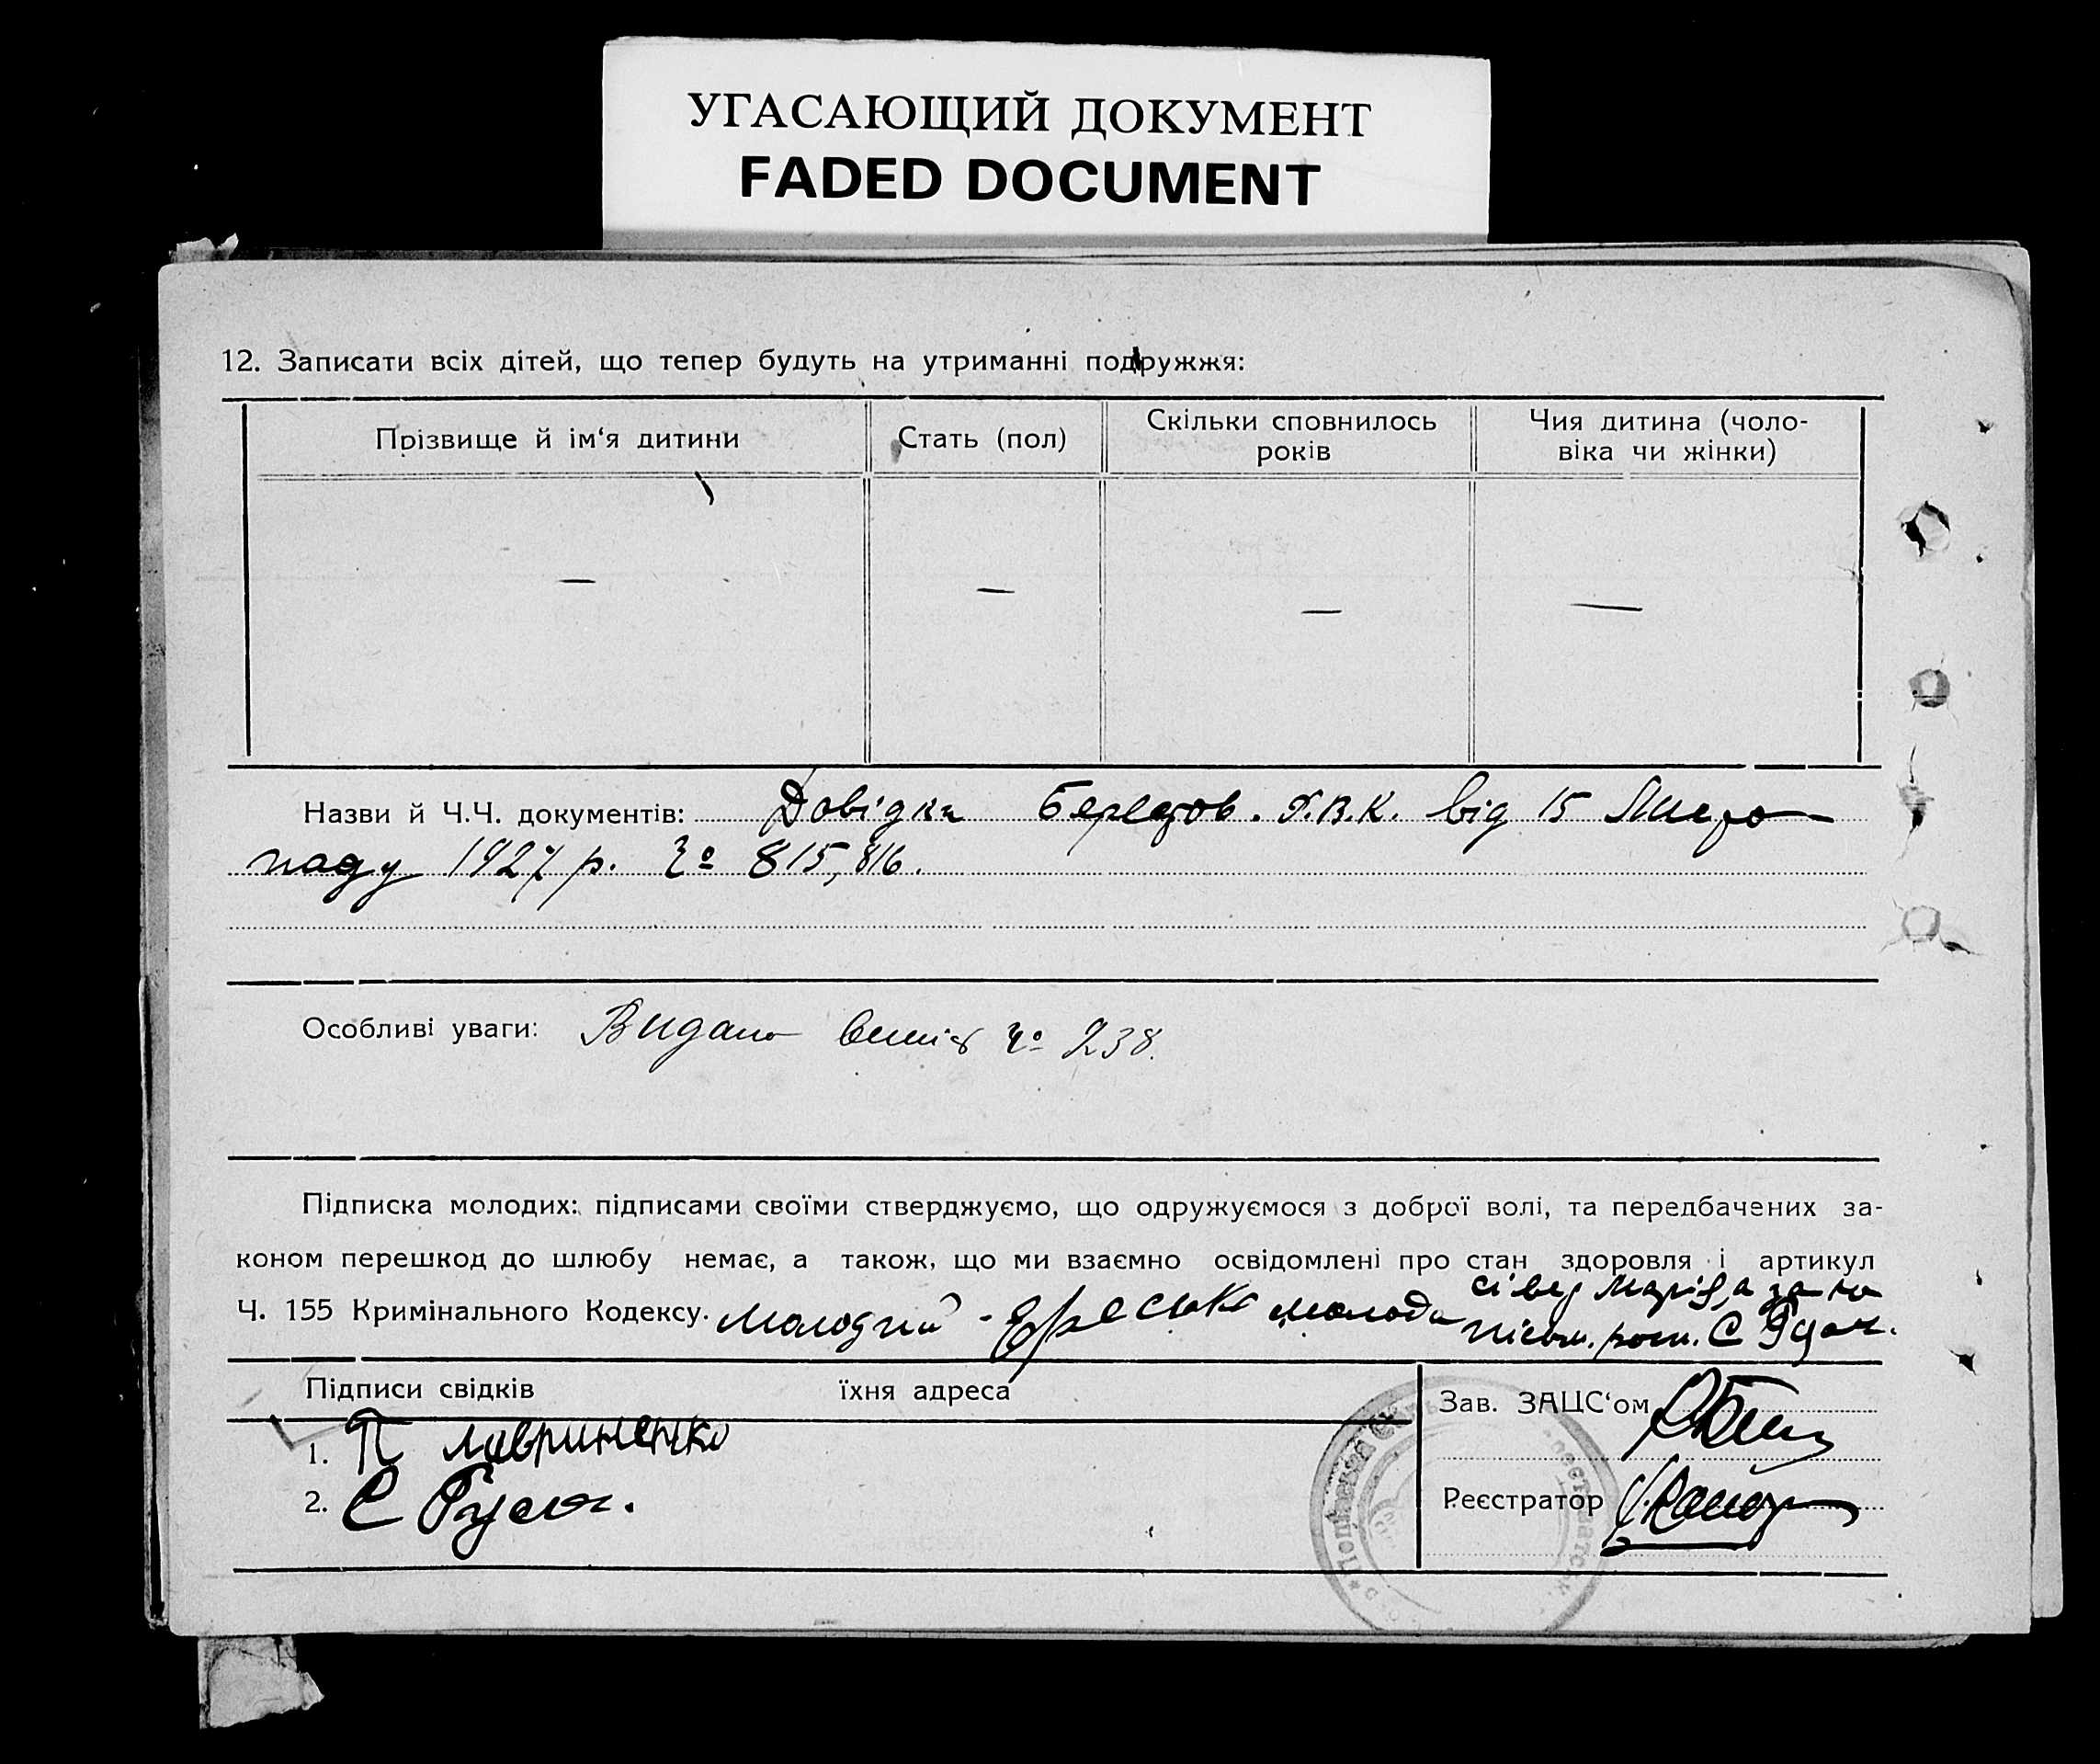 УГАСАЮЩИЙ ДОКУМЕНТ
FADED DOCUMENT
12. Записати всіх дітей, що тепер будуть на утриманні подружжя:
Прізвище й ім‘я дитини
Стать (пол)
Скільки сповнилось
років
Чия дитина (чоло-
віка чи жінки)
— — — —
Назви й Ч.Ч. документів: Довідка Берестов. Р.В.К. від 15 Листо-
паду 1927 р. Чо 815, 816.
Особливі уваги: Видано Чо 238.
Підписка молодих: підписами своїми стверджуємо, що одружуємося з доброї волі, та передбачених за-
коном перешкод до шлюбу немає, а також, що ми взаємно освідомлені про стан здоровля і артикул
Ч. 155 Кримінального Кодексу. Молодий - молода
Марія, а за неі
С
Підписи свідків їхня адреса
1. П Лавриненко
2. С
Зав. ЗАЦС‘ом
Реєстратор